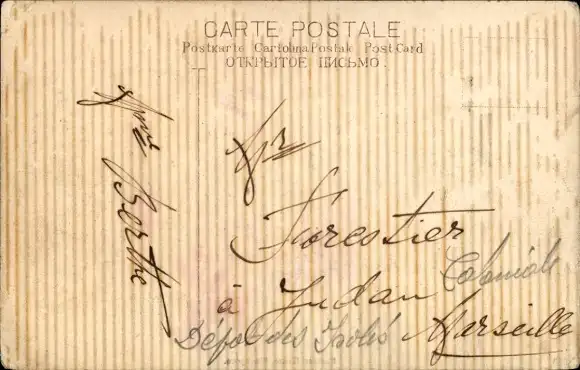 CARTE POSTALE
Postkarte Cartolina Postale Post Card
ОТКРЫТОЕ ПИСЬМО.
Forestier
à Judan Coloniale
Dépot des Isolés Marseille
Berthe